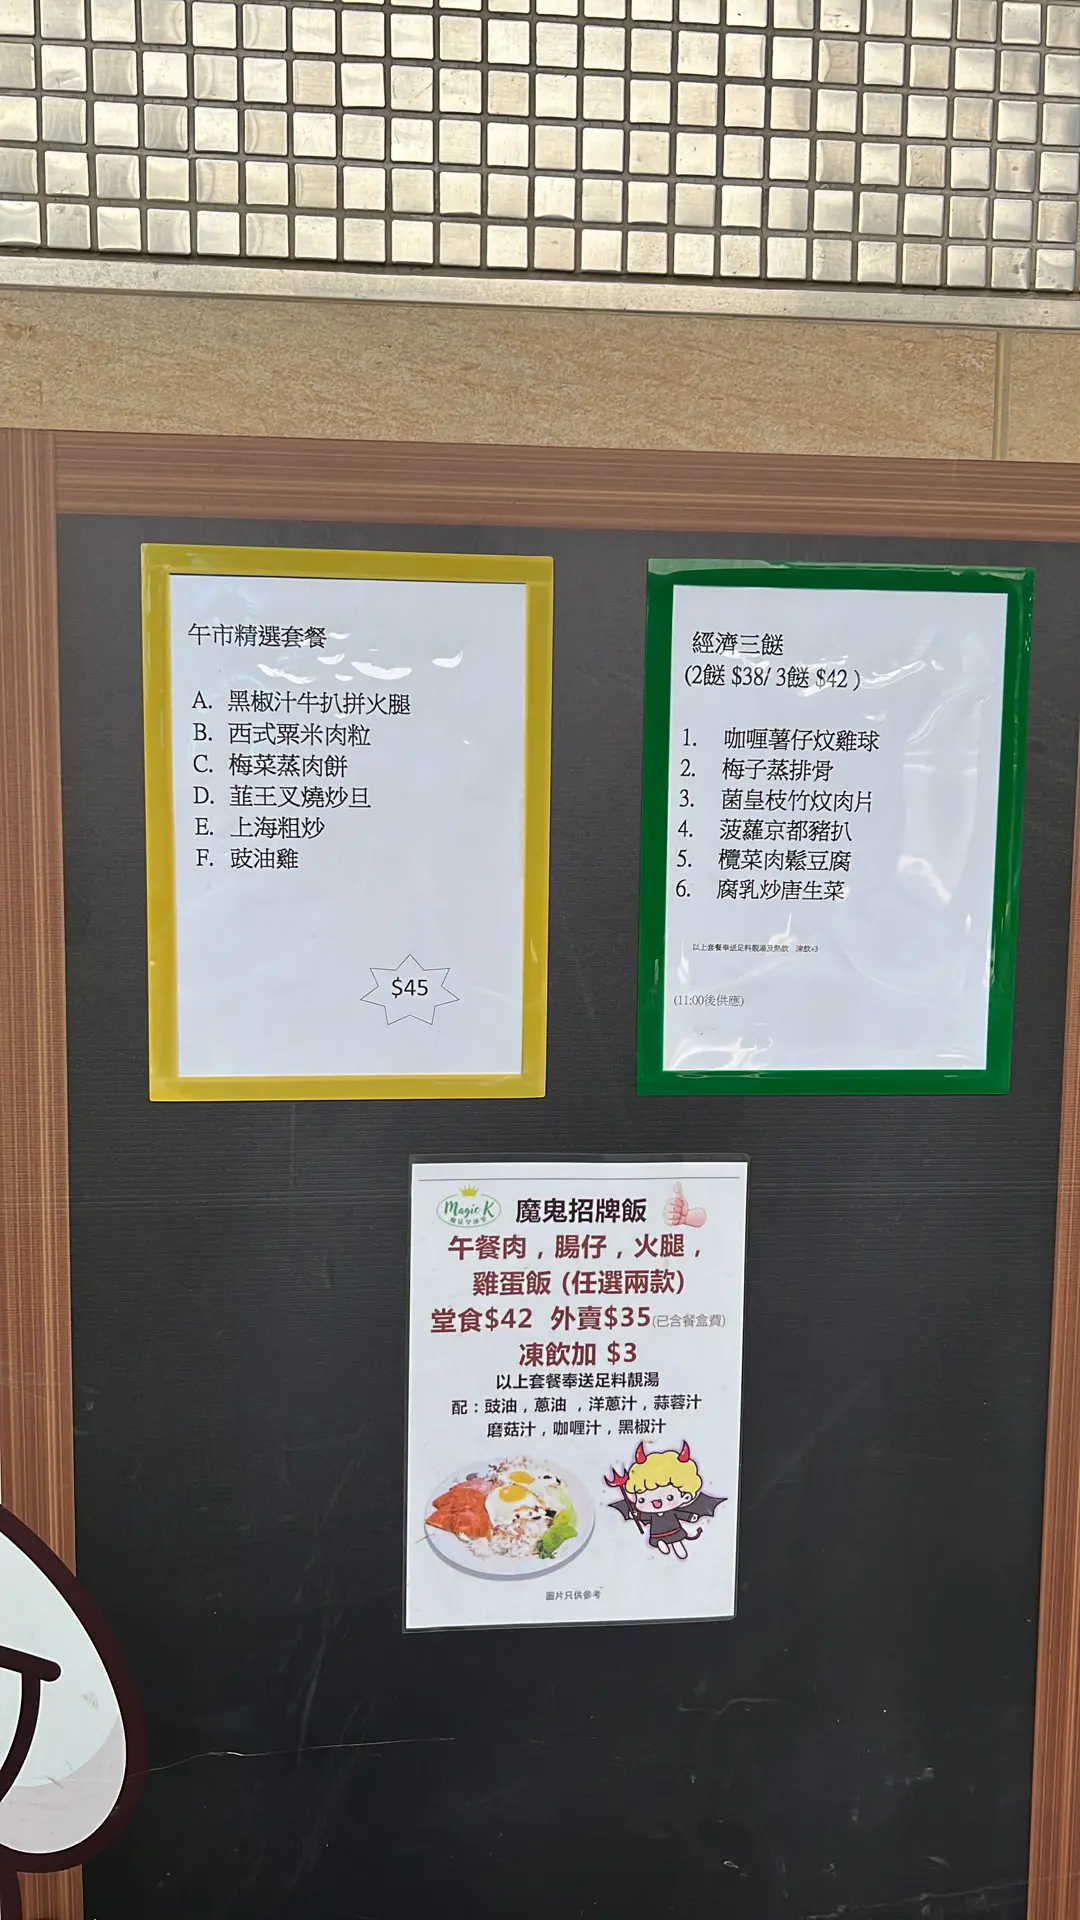 午市精選套餐
A. 黑椒汁牛扒拼火腿
B. 西式粟米肉粒
C. 梅菜蒸肉餅
D. 韮王叉燒炒旦
E. 上海粗炒
F. 豉油雞
$45
經濟三餸
(2餸 $38/ 3餸 $42 )
1. 咖喱薯仔炆雞球
2. 梅子蒸排骨
3. 菌皇枝竹炆肉片
4. 菠蘿京都豬扒
5. 欖菜肉鬆豆腐
6. 腐乳炒唐生菜
以上套餐奉送足料靚湯及熱飲 凍飲+3
(11:00後供應)
Magic K
魔鬼招牌飯
午餐肉，腸仔，火腿，
雞蛋飯 (任選兩款)
堂食$42 外賣$35(已含餐盒費)
凍飲加 $3
以上套餐奉送足料靚湯
配：豉油，蔥油 ，洋蔥汁，蒜蓉汁
磨菇汁，咖喱汁，黑椒汁
圖片只供參考